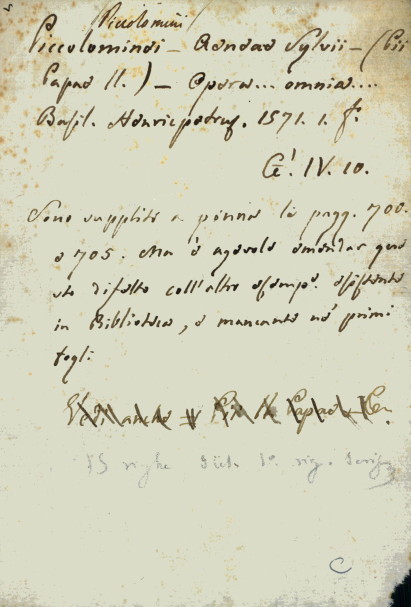 Piccolomini
Piccolominei – Aeneae Sylvii – (Pii
Papae II.) – Opera... omnia....
Basil. Henricpetrus. 1571. 1. fo.
G'. IV. 10.
Sono supplite a penna le pagg. 700.
e 705. Ma è agevole emendar que
sto difetto coll'altro esempe. esistente
in Biblioteca, e mancante ne' primi
fogli
Vedi anche Pii II Papae
C